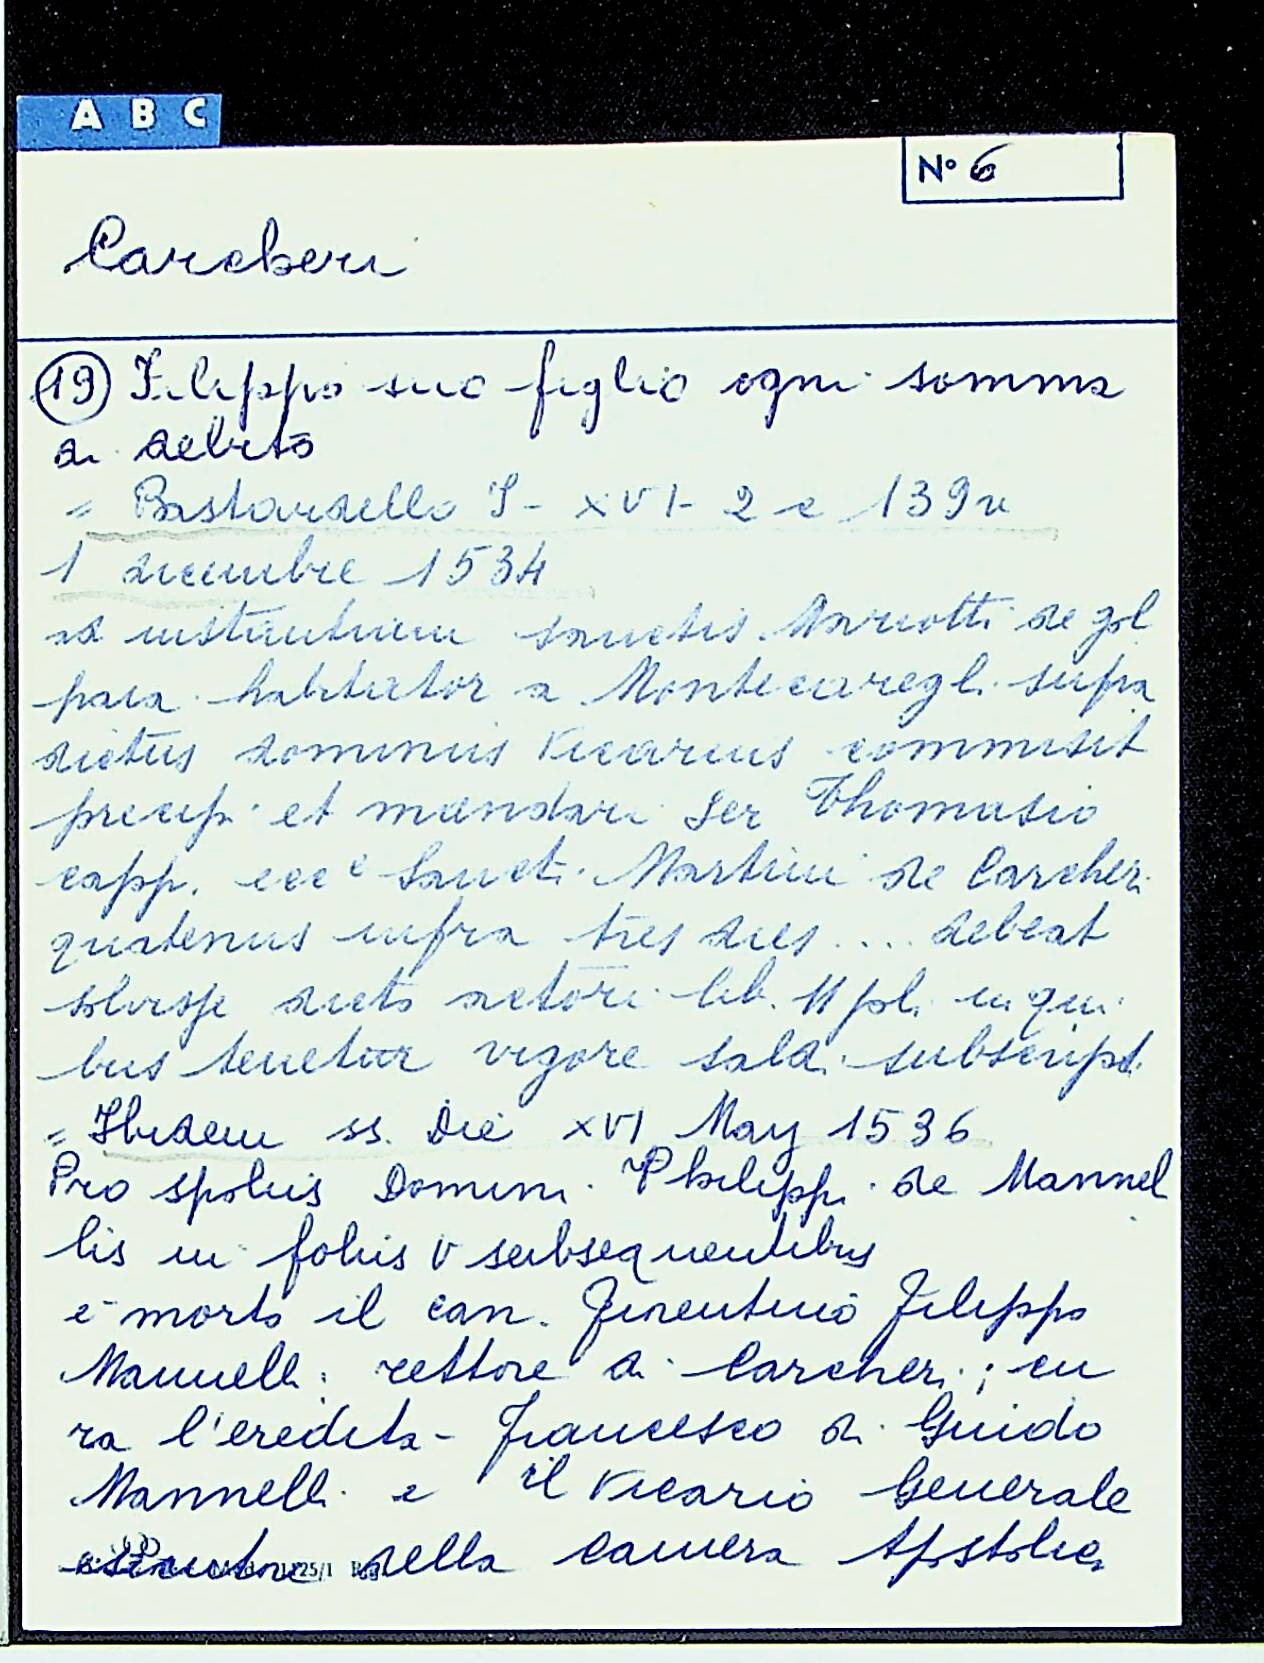 A B C
N° 6
Carcheri
19 Filippo suo figlio ogni somma
di debito
= Bastardello S- XVI- 2 c 139v
1 dicembre 1534
ad instantiam Sanctis Mariotti de gol
para habitator a Montecaregli supra
dictus dominus Vicarius commisit
precip. et mandari Ser Thomasio
capp. ecce Sancti Martini de Carcher.
quatenus infra tres dies .... debeat
solvisse dicto actori lib. 11 pl. in qui
bus tenetur vigore sald. subscript.
= Ibidem ss. Die XVI May 1536
Pro spoliis Domini Philippi de Mannel
lis in foliis V subsequentibus
e' morto il can. fiorentino Filippo
Mannelli rettore di Carcheri; cu
ra l'eredità Francesco di Guido
Mannelli e il Vicario Generale
della Camera Apostolica